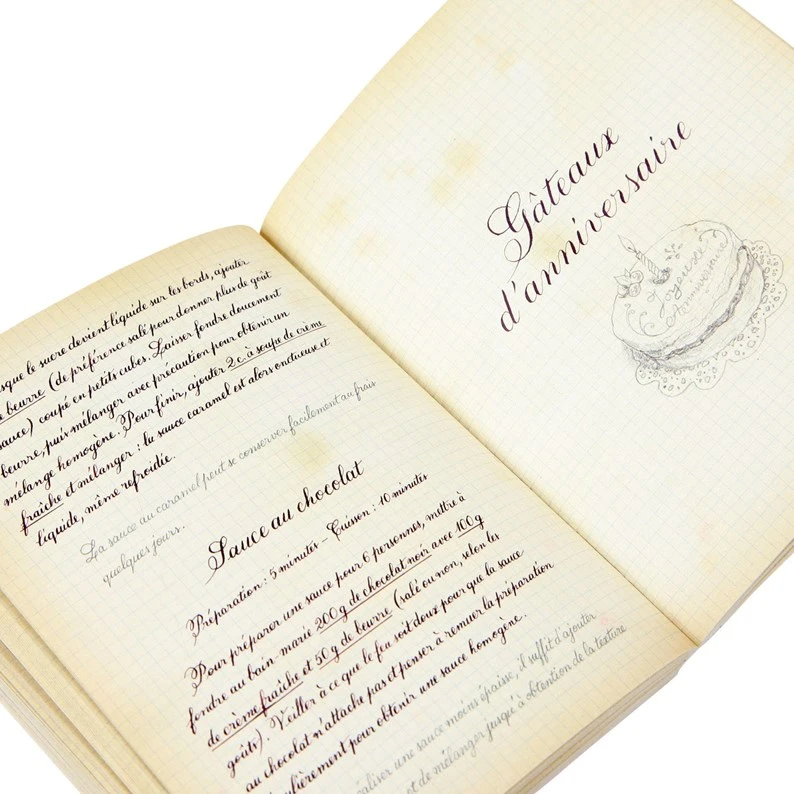 sque le sucre devient liquide sur les bords, ajouter
beurre (de préférence salé pour donner plus de goût
sauce) coupé en petits cubes. Laisser fondre doucement
beurre, puis mélanger avec précaution pour obtenir un
mélange homogène. Pour finir, ajouter 2 c. à soupe de crème
fraîche et mélanger : la sauce caramel est alors onctueuse et
liquide, même refroidie.
La sauce au caramel peut se conserver facilement au frais
quelques jours.
Sauce au chocolat
Préparation : 5 minutes – Cuisson : 10 minutes
Pour préparer une sauce pour 6 personnes, mettre à
fondre au bain-marie 200 g de chocolat noir avec 100 g
de crème fraîche et 50 g de beurre (salé ou non, selon les
goûts). Veiller à ce que le feu soit doux pour que la sauce
au chocolat n'attache pas et penser à remuer la préparation
ulièrement pour obtenir une sauce homogène.
éaliser une sauce moins épaisse, il suffit d'ajouter
et de mélanger jusqu'à obtention de la texture
Gâteaux
d'anniversaire
Joyeux
Anniversaire